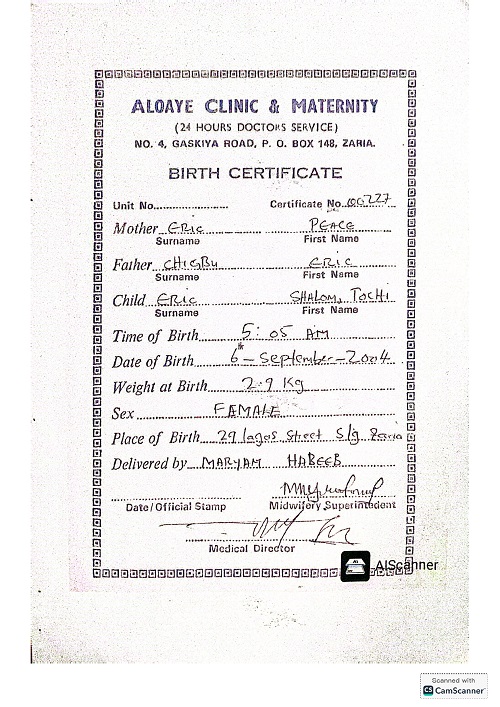 ALOAYE CLINIC & MATERNITY
(24 HOURS DOCTORS SERVICE)
NO. 4, GASKIYA ROAD, P. O. BOX 148, ZARIA.
BIRTH CERTIFICATE
Unit No........................ Certificate No. 00227
Mother ERIC PEACE
Surname First Name
Father CHIGBU ERIC
Surname First Name
Child ERIC SHALOM, TOCHI
Surname First Name
Time of Birth 5:05 AM
Date of Birth 6th - September - 2004
Weight at Birth 2.9 Kg
Sex FEMALE
Place of Birth 29 lagos street S/g Zaria
Delivered by MARYAM HABEEB
Date/Official Stamp Midwifery Superintendent
Medical Director
AIScanner
Scanned with
CS CamScanner